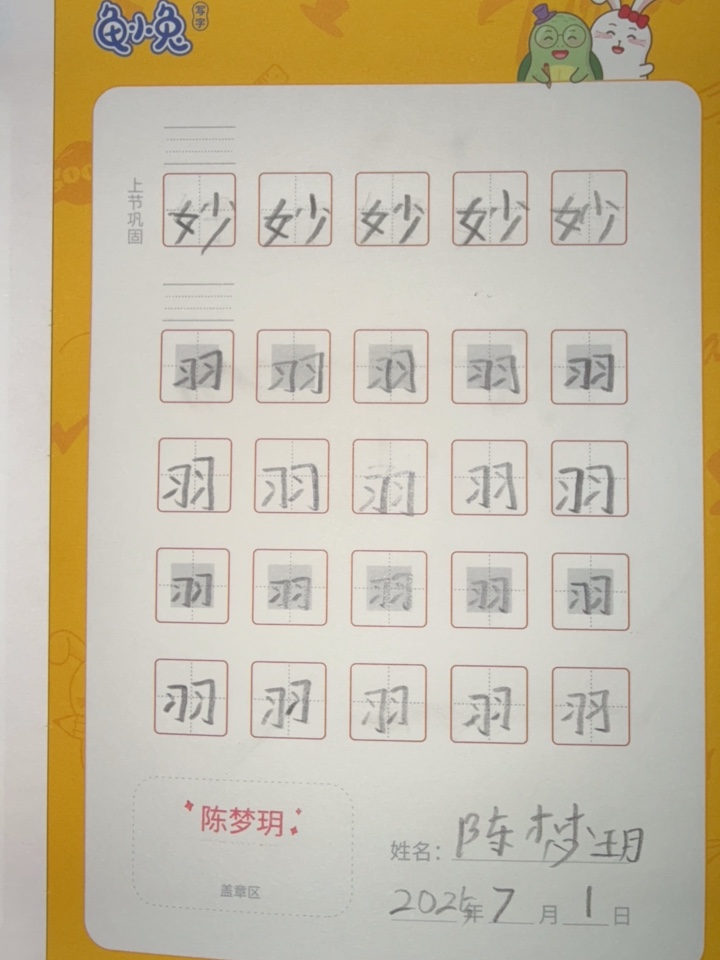 龟小兔 写字
上节巩固
妙 妙 妙 妙 妙
羽 羽 羽 羽 羽
羽 羽 羽 羽 羽
羽 羽 羽 羽 羽
羽 羽 羽 羽 羽
陈梦玥
盖章区
姓名：陈梦玥
2025年7月1日